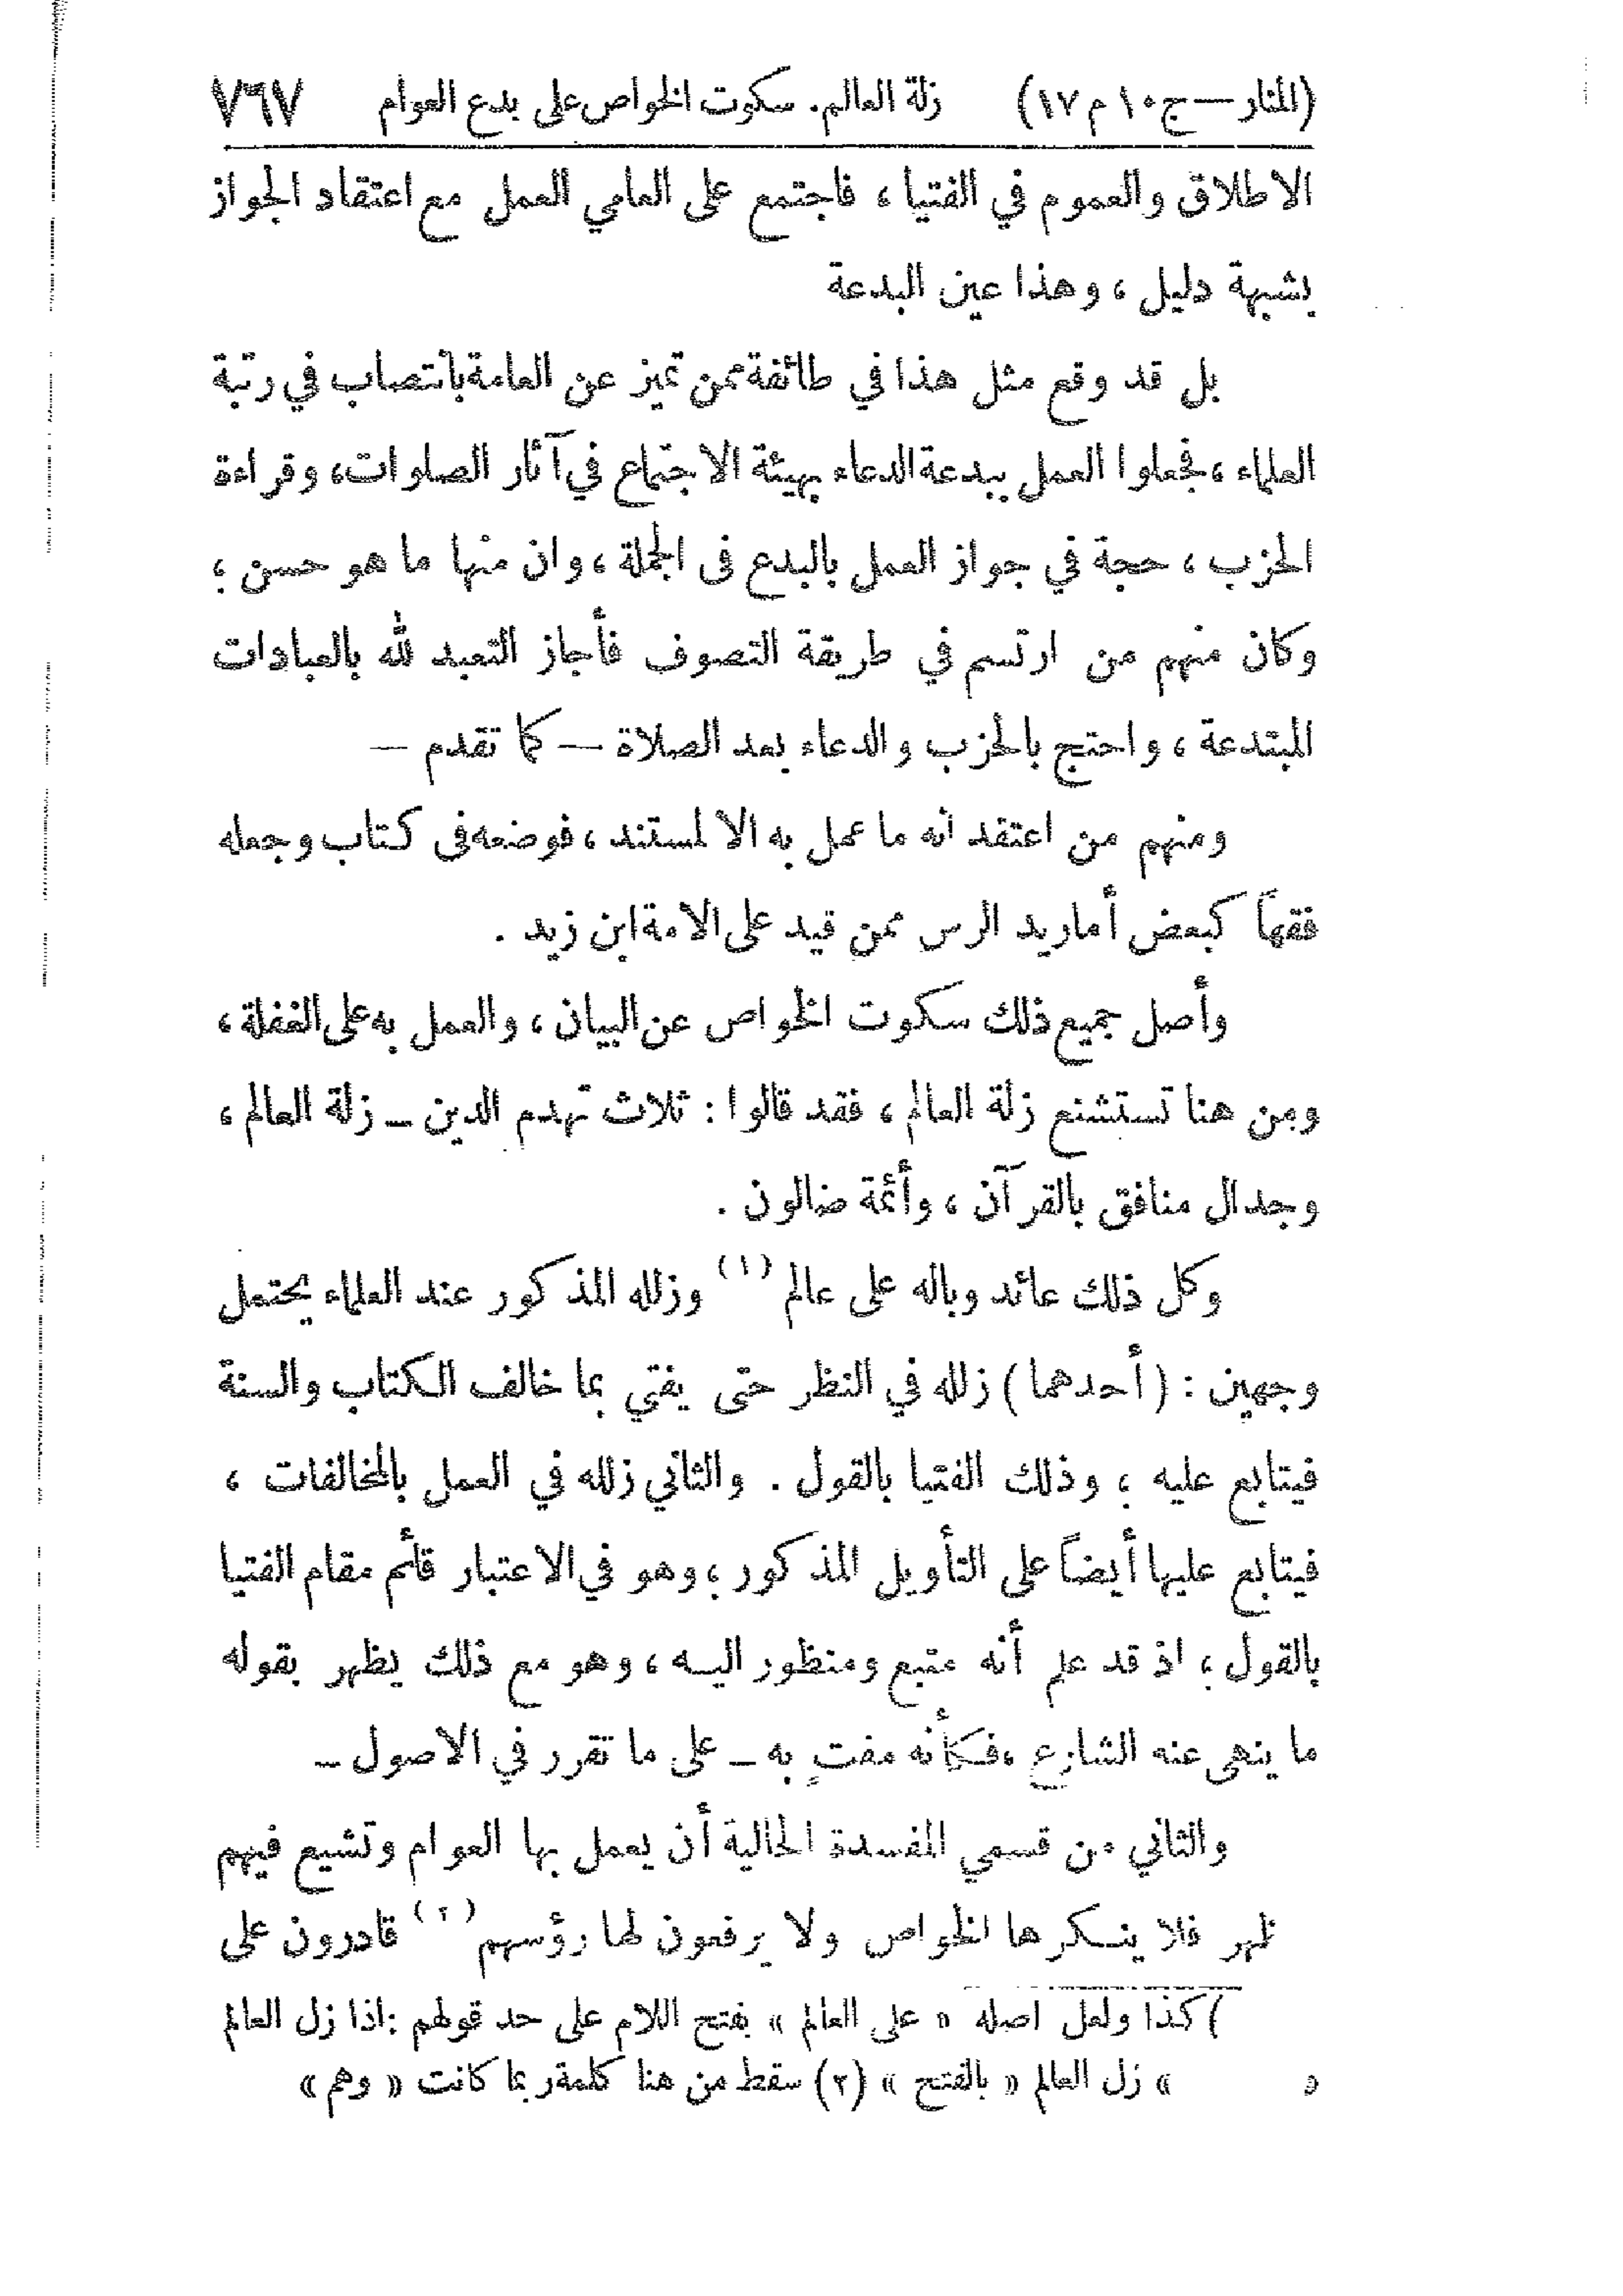 (المنار — ج ١٠ م ١٧) زلة العالم. سكوت الخواص على بدع العوام ٧٦٧
الاطلاق والعموم في الفتيا ، فاجتمع على العامي العمل مع اعتقاد الجواز
بشبهة دليل ، وهذا عين البدعة
بل قد وقع مثل هذا في طائفة ممن تميز عن العامة بانتصاب في رتبة
العلماء ، فجعلوا العمل ببدعة الدعاء بهيئة الاجتماع في آثار الصلوات، وقراءة
الحزب ، حجة في جواز العمل بالبدع فى الجملة ، وان منها ما هو حسن ؛
وكان منهم من ارتسم في طريقة التصوف فأجاز التعبد لله بالعبادات
المبتدعة ، واحتج بالحزب والدعاء بعد الصلاة — كما تقدم —
ومنهم من اعتقد انه ما عمل به الا لمستند ، فوضعه فى كتاب وجعله
فقهاً كبعض أماريد الرس ممن قيد على الامة ابن زيد .
وأصل جميع ذلك سكوت الخواص عن البيان ، والعمل به على الغفلة ،
ومن هنا تستشنع زلة العالم ، فقد قالوا : ثلاث تهدم الدين ــ زلة العالم ،
وجدال منافق بالقرآن ، وأئمة ضالون .
وكل ذلك عائد وباله على عالم (١) وزلله المذكور عند العلماء يحتمل
وجهين : (أحدهما) زلله في النظر حتى يفتي بما خالف الكتاب والسنة
فيتابع عليه ؛ وذلك الفتيا بالقول . والثاني زلله في العمل بالمخالفات ،
فيتابع عليها أيضاً على التأويل المذكور ؛ وهو في الاعتبار قائم مقام الفتيا
بالقول ؛ اذ قد علم أنه متبع ومنظور اليـه ، وهو مع ذلك يظهر بقوله
ما ينهى عنه الشارع ، فكأنه مفتٍ به ــ على ما تقرر في الاصول ــ
والثاني من قسمي المفسدة الحالية أن يعمل بها العوام وتشيع فيهم
تظهر فلا ينـكرها الخواص ولا يرفعون لها رؤسهم (٢) قادرون على
) كذا ولعل اصله « على العالم » بفتح اللام على حد قولهم : اذا زل العالم
» زل العالم « بالفتح » (٢) سقط من هنا كلمة ربما كانت « وهم »